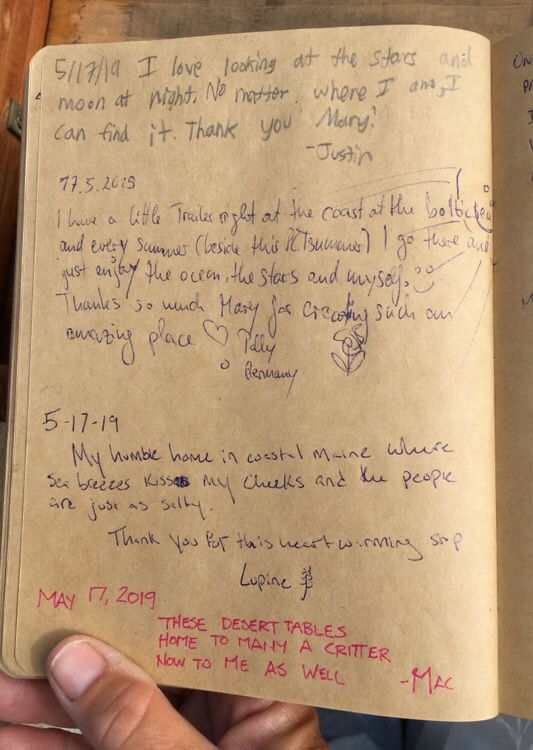 5/17/19 I love looking at the stars and
moon at night. No matter where I am, I
can find it. Thank you Mary!
-Justin
17.5.2019
I have a little Trailer right at the coast at the baltic sea
and every summer (beside this PCT summer) I go there and
just enjoy the ocean, the stars and myself.
Thanks so much Mary for creating such an
amazing place
Germany
5-17-19
My humble home in coastal Maine where
Sea breezes kiss my cheeks and the people
are just as salty.
Thank you for this heart warming stop
Lupine
MAY 17, 2019
THESE DESERT TABLES
HOME TO MANY A CRITTER
NOW TO ME AS WELL
-MAC